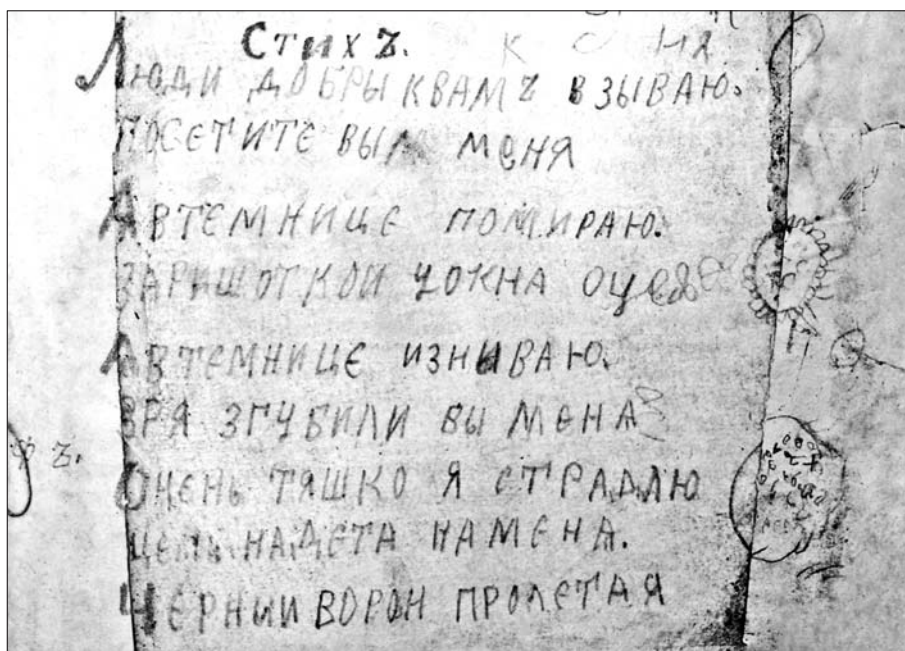 Стихъ.
Люди добры квамъ взываю.
посетите вы меня
Автемнице помираю.
заришоткои уокна
Автемнице изниваю.
зря згубили вы мена
Очень тяшко я страдаю
цепь надета намена.
Чернии ворон пролетая